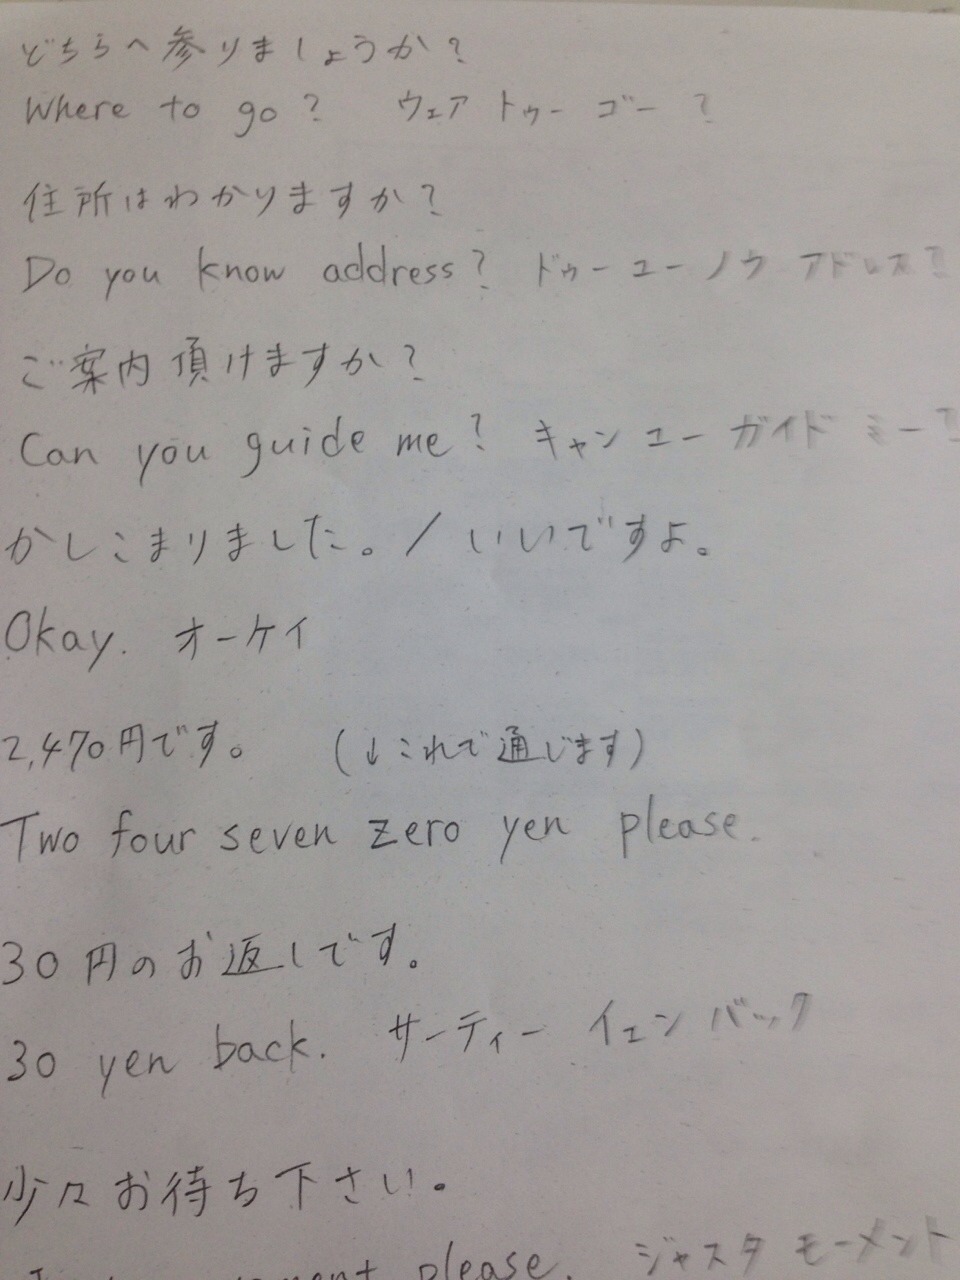 どちらへ参りましょうか?
Where to go? ウェア トゥー ゴー ?
住所はわかりますか?
Do you know address? ドゥー ユー ノウ アドレス?
ご案内頂けますか?
Can you guide me? キャン ユー ガイド ミー?
かしこまりました。/ いいですよ。
Okay. オーケイ
2,470円です。 (↓これで通じます)
Two four seven zero yen please.
30円のお返しです。
30 yen back. サーティー イェン バック
少々お待ち下さい。
please. ジャスタ モーメント